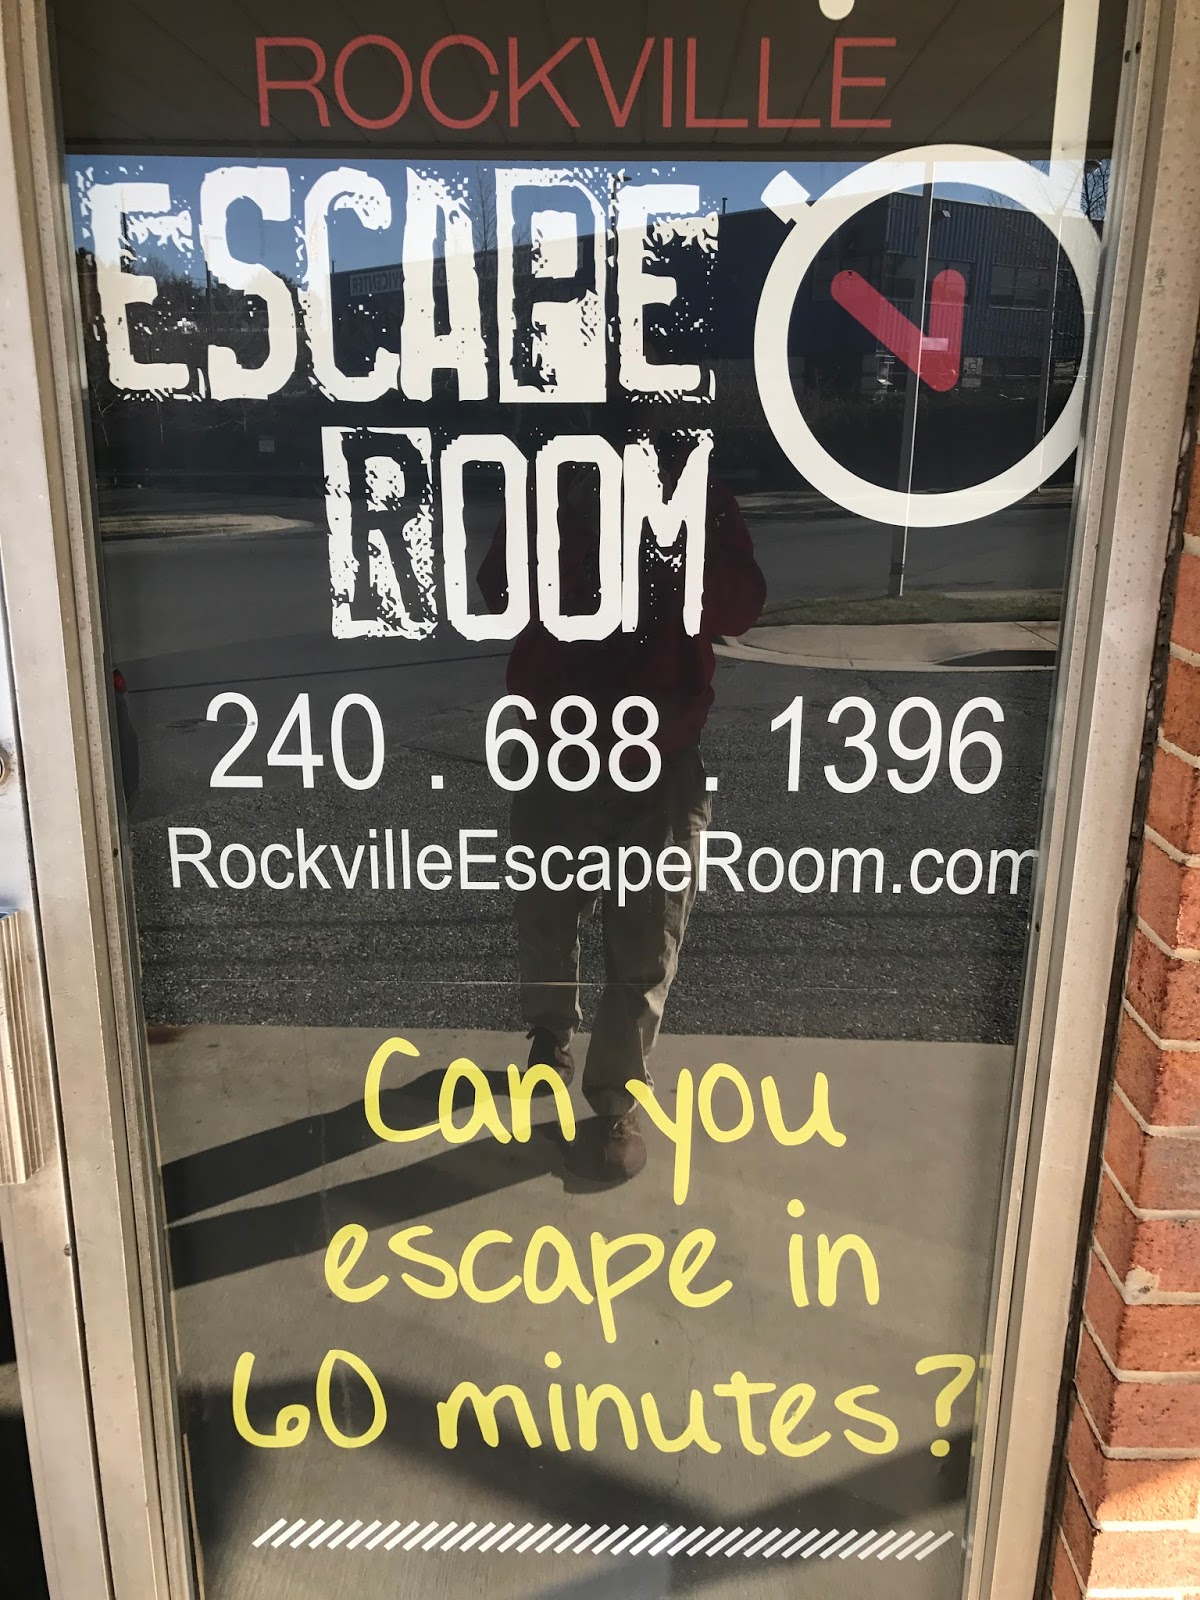 ROCKVILLE
ESCAPE
ROOM
240 . 688 . 1396
RockvilleEscapeRoom.com
Can you
escape in
60 minutes?